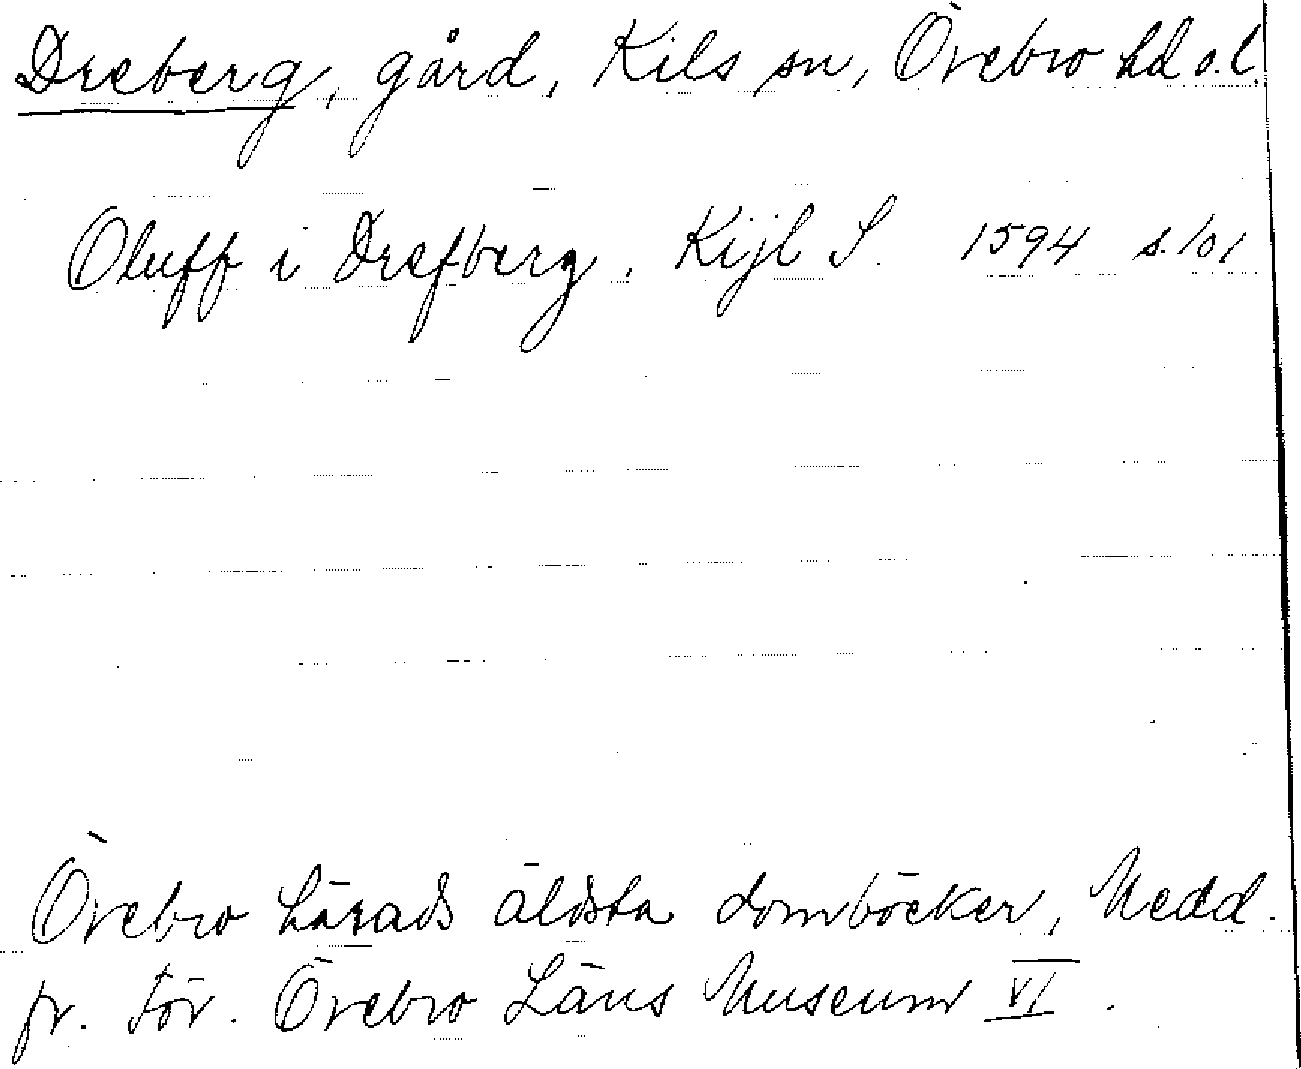 Dreberg, gård, Kils sn, Örebro hd o. l.
Oluff i Drefberg, Kijl S. 1594 s. 101
Örebro härads äldsta domböcker, Medd.
fr. För. Örebro Läns Museum VI.